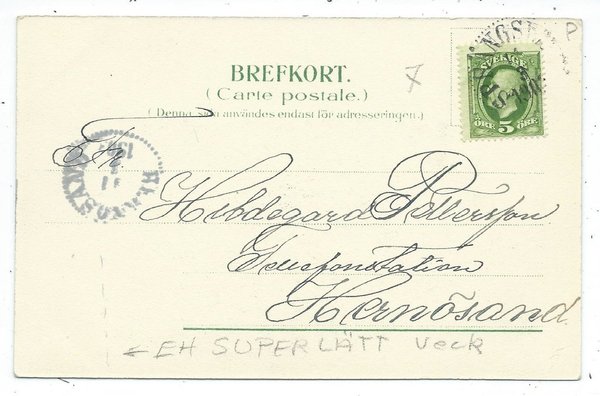 BREFKORT.
(Carte postale.)
(Denna sida användes endast för adresseringen.)
SVERIGE
ÖRE 5 ÖRE
Fr.
Hildegard Pettersson
Telefonstation
Hernösand
← EH SUPER LÄTT veck
P
7